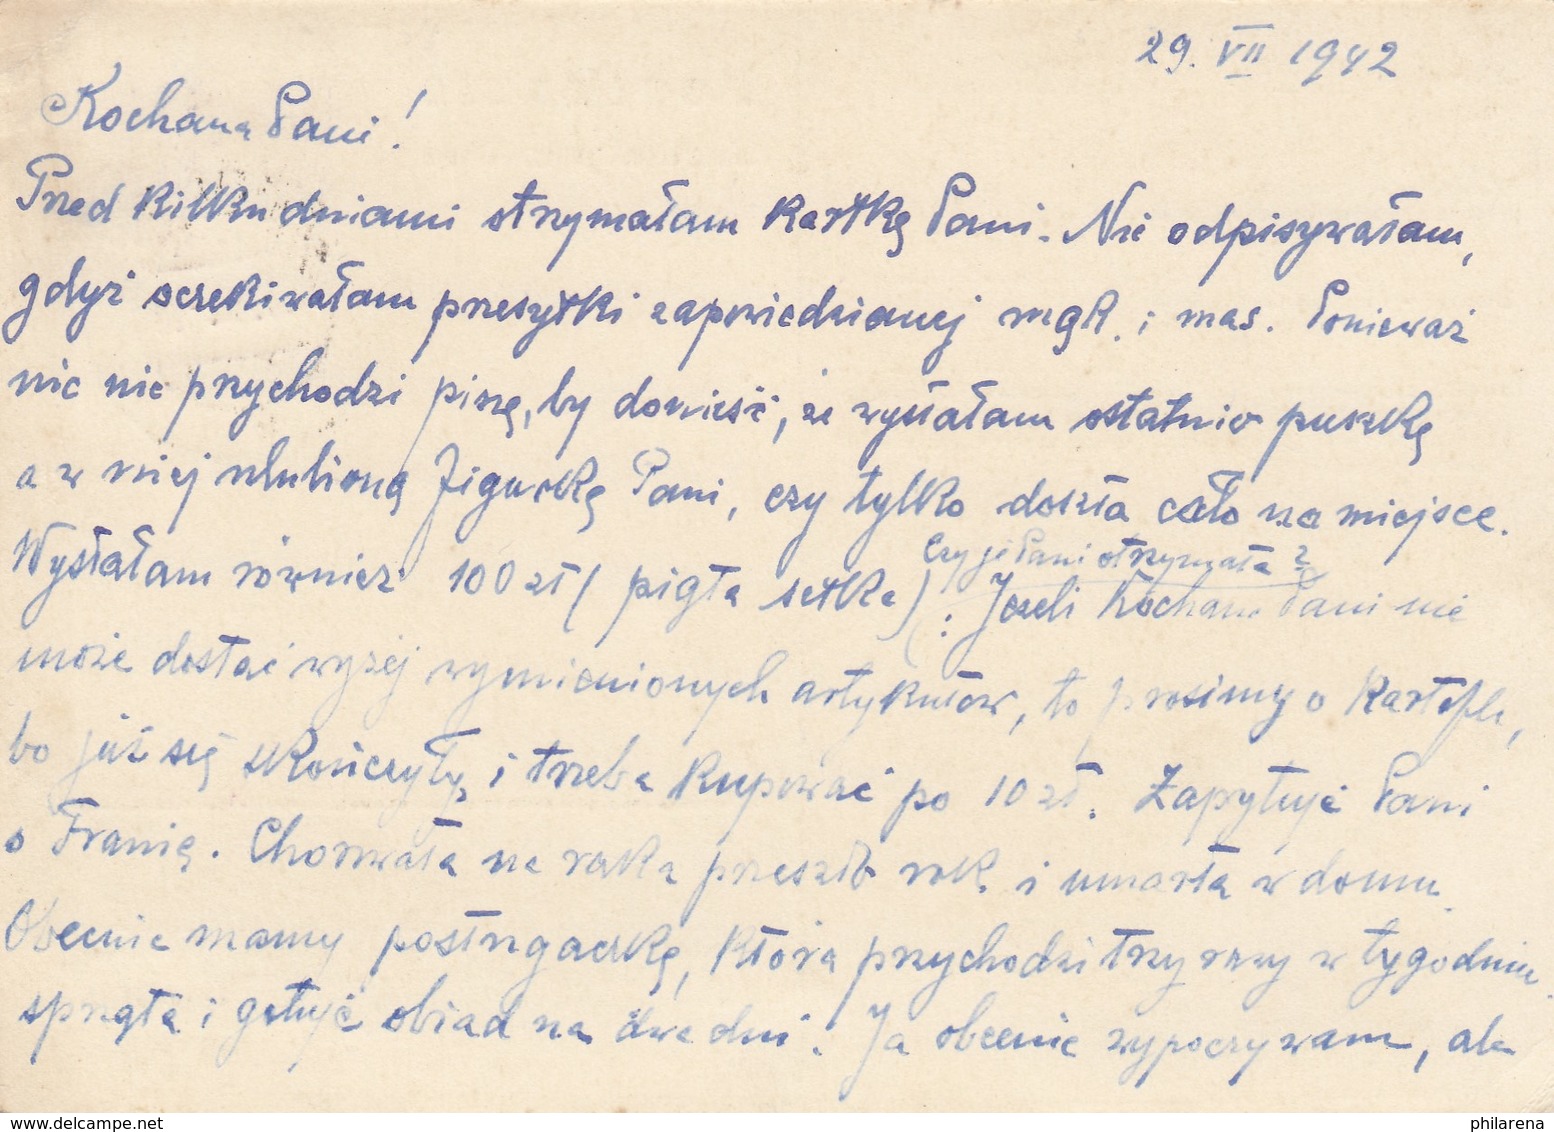 29. VII 1942
Kochana Pani!
Przed kilku dniami otrzymałam kartkę Pani. Nie odpisywałam,
gdyż oczekiwałam przesyłki zapowiedzianej mąk. i mas. Ponieważ
nic nie przychodzi piszę, by donieść, że wysłałam ostatnio puszkę
a w niej ulubioną figurkę Pani, czy tylko doszła cało na miejsce.
Czy je Pani otrzymała?
Wysłałam również 100 zł (piąta setka). Jeżeli Kochana Pani nie
może dostać wyżej wymienionych artykułów, to prosimy o kartofle,
bo już się skończyły, i trzeba kupować po 10 zł. Zapytuje Pani
o Franię. Chorowała na raka przeszło rok i umarła w domu.
Obecnie mamy posługaczkę, która przychodzi trzy razy w tygodniu.
sprząta i gotuje obiad na dwa dni. Ja obecnie wypoczywam, ale
philarena.com on delcampe.net
philarena